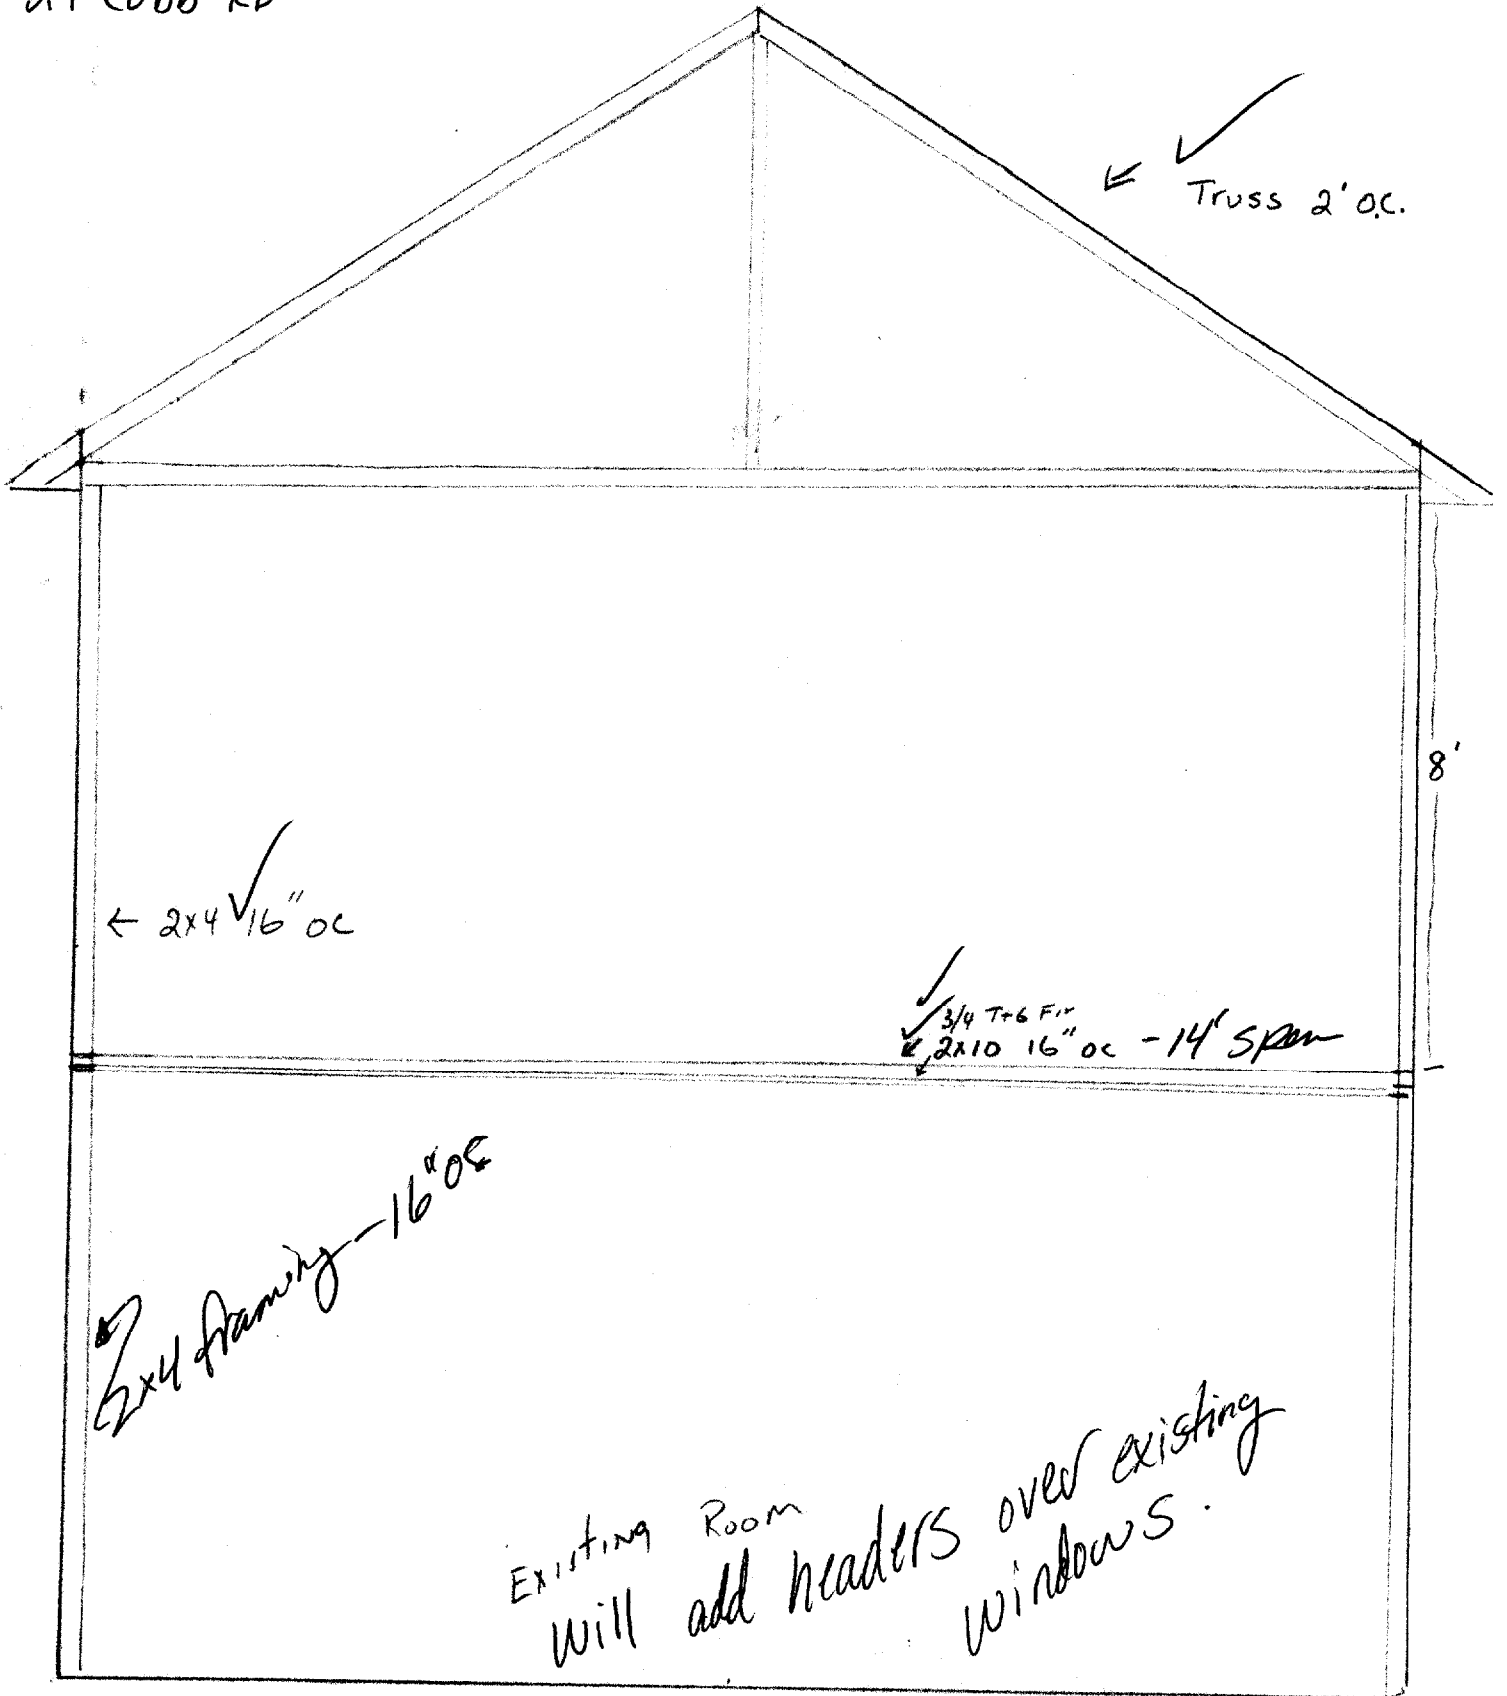 Cobb RD
Truss 2' O.C.
8'
← 2x4 16" OC
3/4 T+G Fir
2x10 16" OC - 14' span
2x4 framing - 16" OC
Existing Room
will add headers over existing
windows.